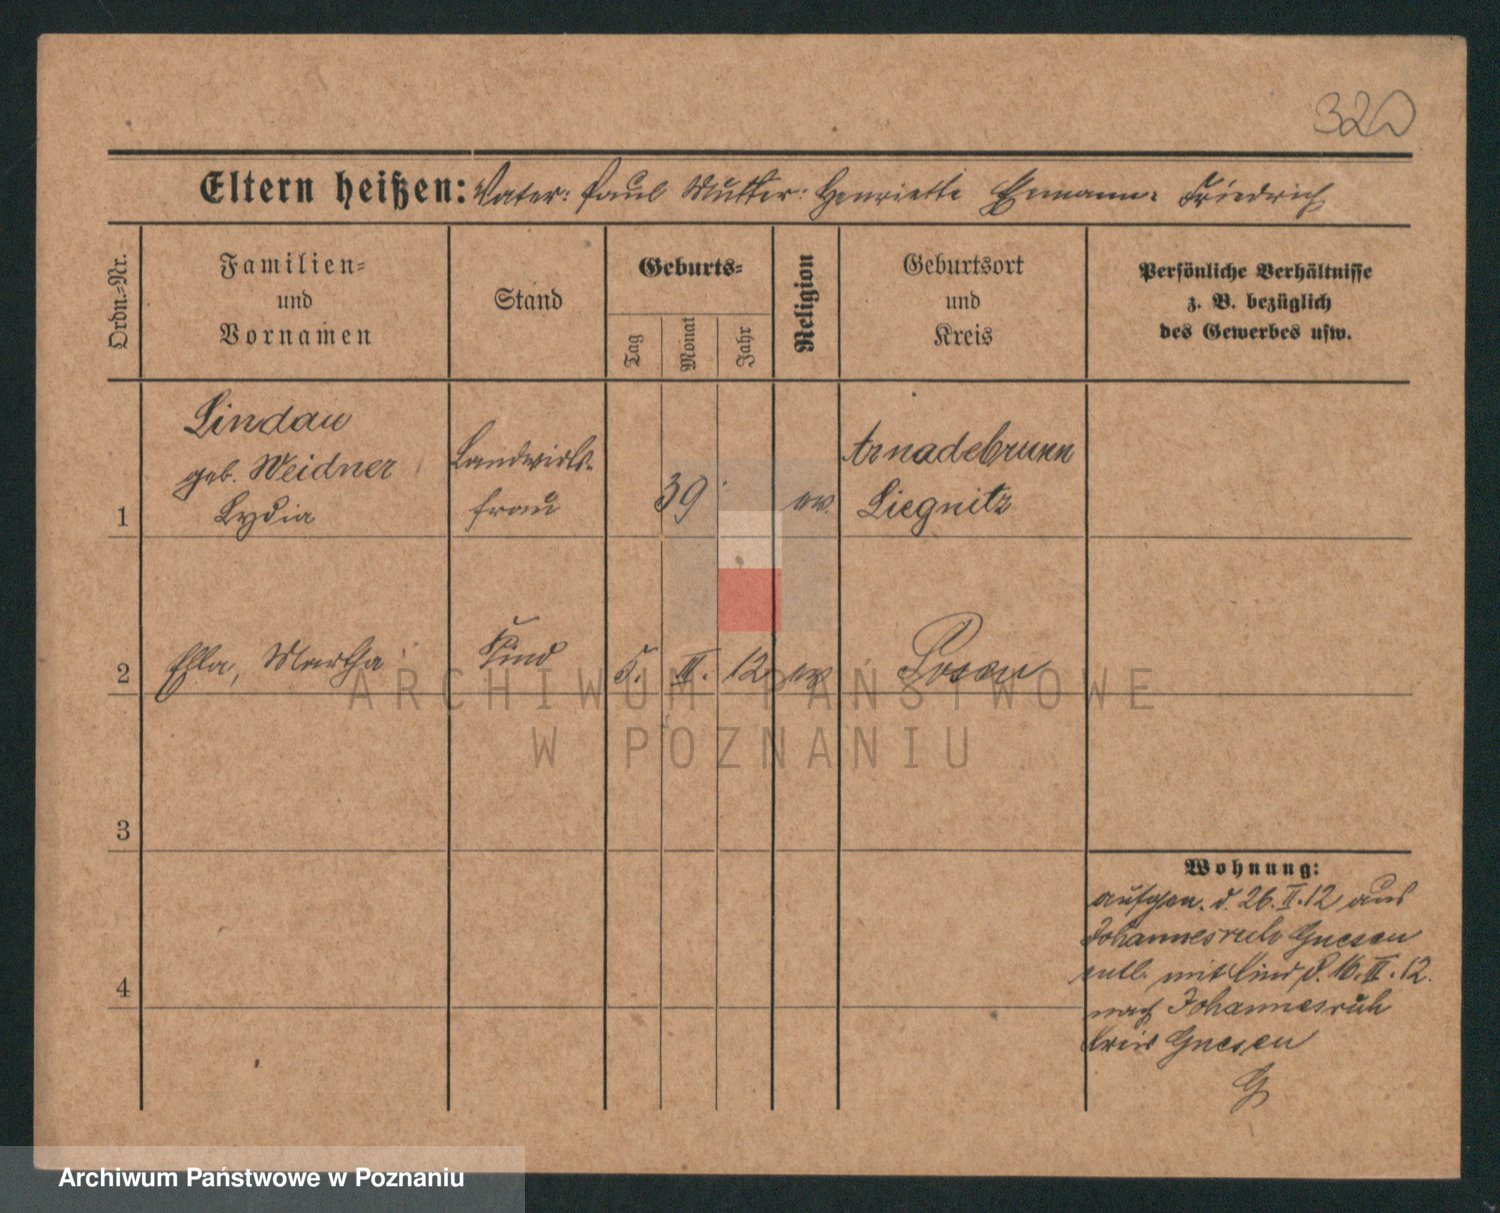 320
Eltern heißen: Vater: Paul Mutter: Henriette Ehmann: Friedrich
Ordn.=Nr.
Familien=
und
Vornamen
Stand
Geburts=
Tag
Monat
Jahr
Religion
Geburtsort
und
Kreis
Persönliche Verhältnisse
z. B. bezüglich
des Gewerbes usw.
1
Lindau
geb. Weidner
Lydia
Landwirts-
frau
39
ev.
Liegnitz
2
Ella, Martha
Kind
5. III. 12
ev
Posen
3
4
Wohnung:
aufgen. d. 26. II. 12 aus
Johannesruh Gnesen
entl. mit Kind d. 16. III. 12.
nach Johannesruh
Kreis Gnesen
G
ARCHIWUM PAŃSTWOWE
W POZNANIU
Archiwum Państwowe w Poznaniu